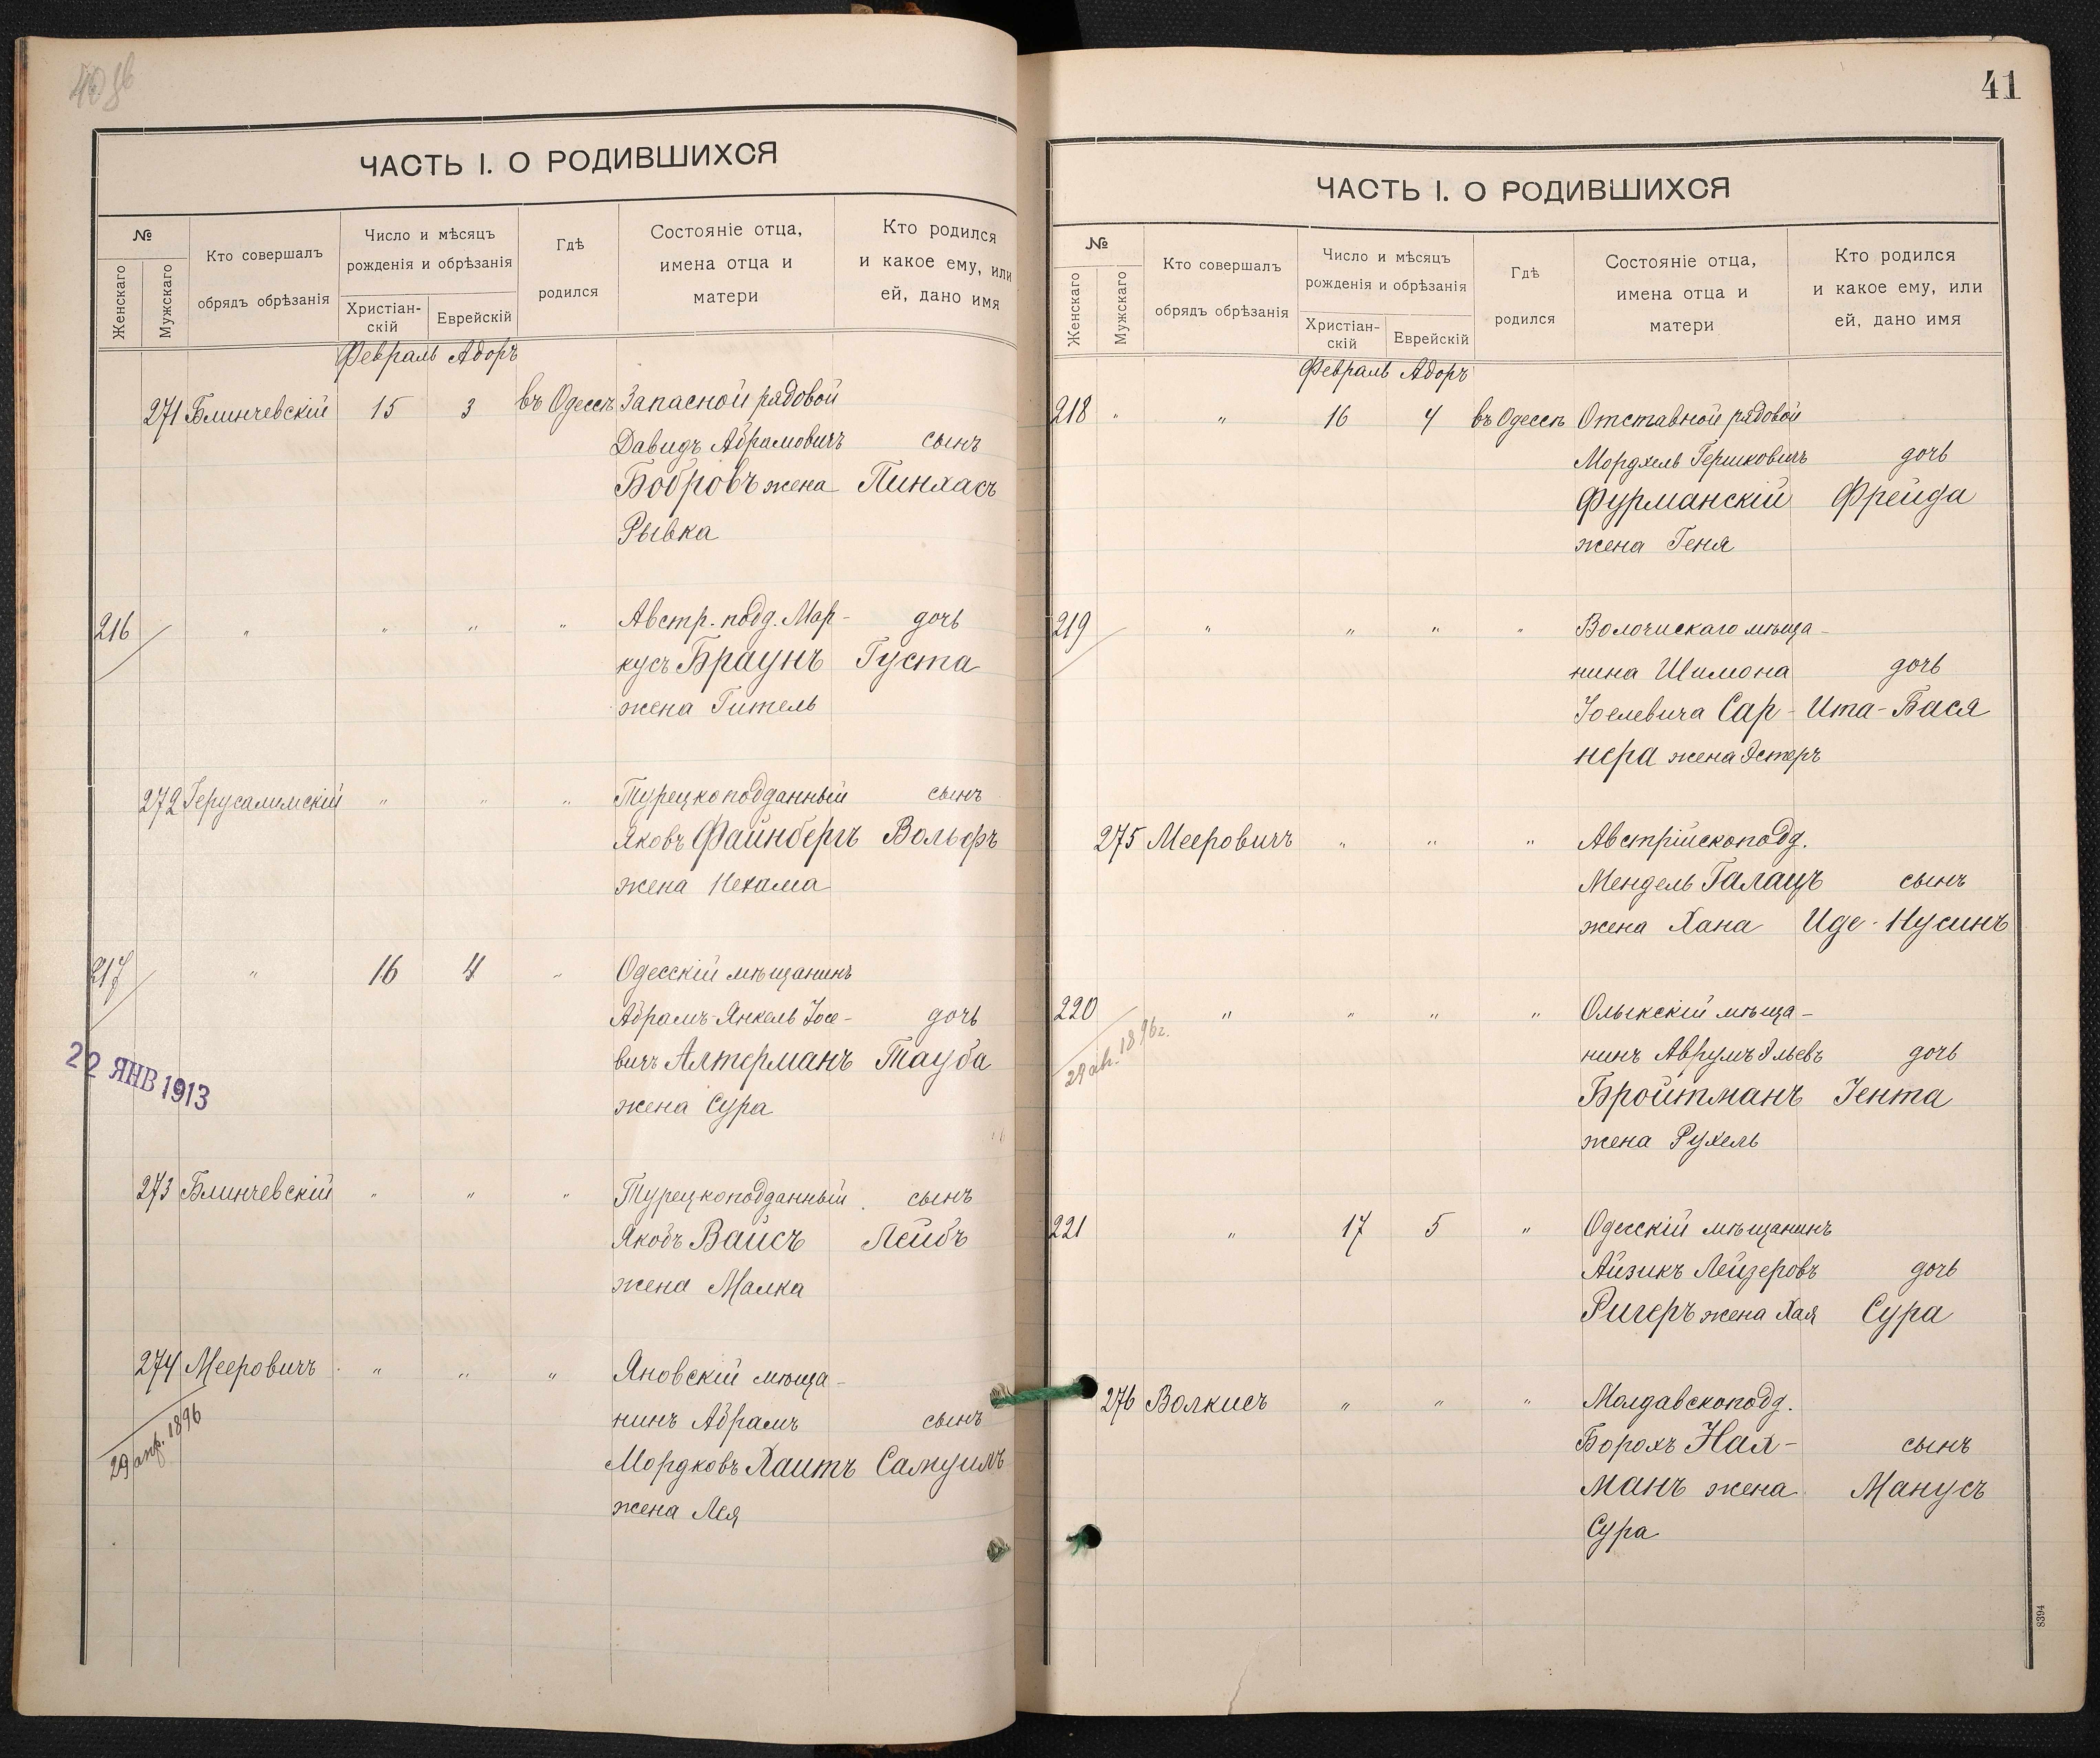 40 об
ЧАСТЬ I. О РОДИВШИХСЯ
№
Женскаго
Мужскаго
Кто совершалъ
обрядъ обрѣзанія
Число и мѣсяцъ
рожденія и обрѣзанія
Христіан-
скій
Еврейскій
Гдѣ
родился
Состояніе отца,
имена отца и
матери
Кто родился
и какое ему, или
ей, дано имя
Февраль Адоръ
271 Блинчевскій 15 3 въ Одессѣ Запасной рядовой
Давидъ Абрамовичъ сынъ
Бобровъ жена Пинхасъ
Рывка
216 " " " " Австр. подд. Мар- дочь
кусъ Браунъ Густа
жена Гитель
272 Іерусалимскій " " " Турецкоподданный сынъ
Яковъ Файнбергъ Вольфъ
жена Нехама
217 " 16 4 " Одесскій мѣщанинъ
Абрамъ-Янкель Іосе- дочь
вичъ Алтерманъ Тауба
жена Сура
22 ЯНВ 1913
273 Блинчевскій " " " Турецкоподданный сынъ
Якобъ Вайсъ Лейбъ
жена Малка
274 Мееровичъ " " " Яновскій мѣща-
нинъ Абрамъ сынъ
29 апр. 1896
Мордковъ Хаитъ Самуилъ
жена Лея
41
ЧАСТЬ I. О РОДИВШИХСЯ
№
Женскаго
Мужскаго
Кто совершалъ
обрядъ обрѣзанія
Число и мѣсяцъ
рожденія и обрѣзанія
Христіан-
скій
Еврейскій
Гдѣ
родился
Состояніе отца,
имена отца и
матери
Кто родился
и какое ему, или
ей, дано имя
Февраль Адоръ
218 " " 16 4 въ Одессѣ Отставной рядовой
Мордхель Гершковичъ дочь
Фурманскій Фрейда
жена Геня
219 " " " " Волочискаго мѣща-
нина Шимона дочь
Іоселевича Сар- Ита-Бася
нера жена Эстеръ
275 Мееровичъ " " " Австрійскоподд.
Мендель Галацъ сынъ
жена Хана Иде-Нусинъ
220 " " " " Олыкскій мѣща-
29 авг. 1896г.
нинъ Аврумъ Эльевъ дочь
Бройтманъ Іента
жена Рухель
221 " 17 5 " Одесскій мѣщанинъ
Айзикъ Лейзеровъ дочь
Ригеръ жена Хая Сура
276 Волкисъ " " " Молдавскоподд.
Борохъ Най- сынъ
манъ жена Манусъ
Сура
8394